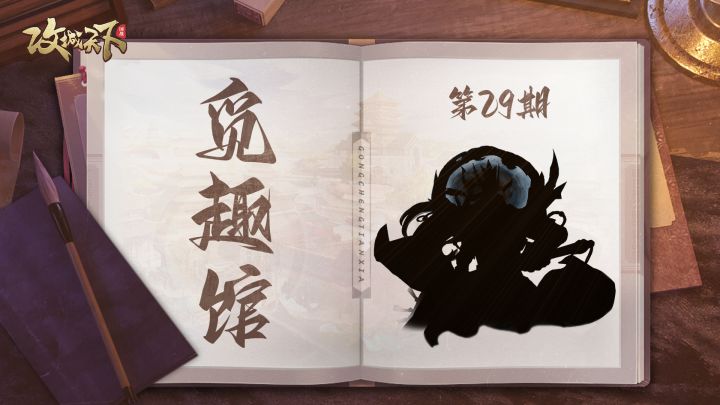 攻城天下
觅趣馆
GONGCHENGTIANXIA
第29期